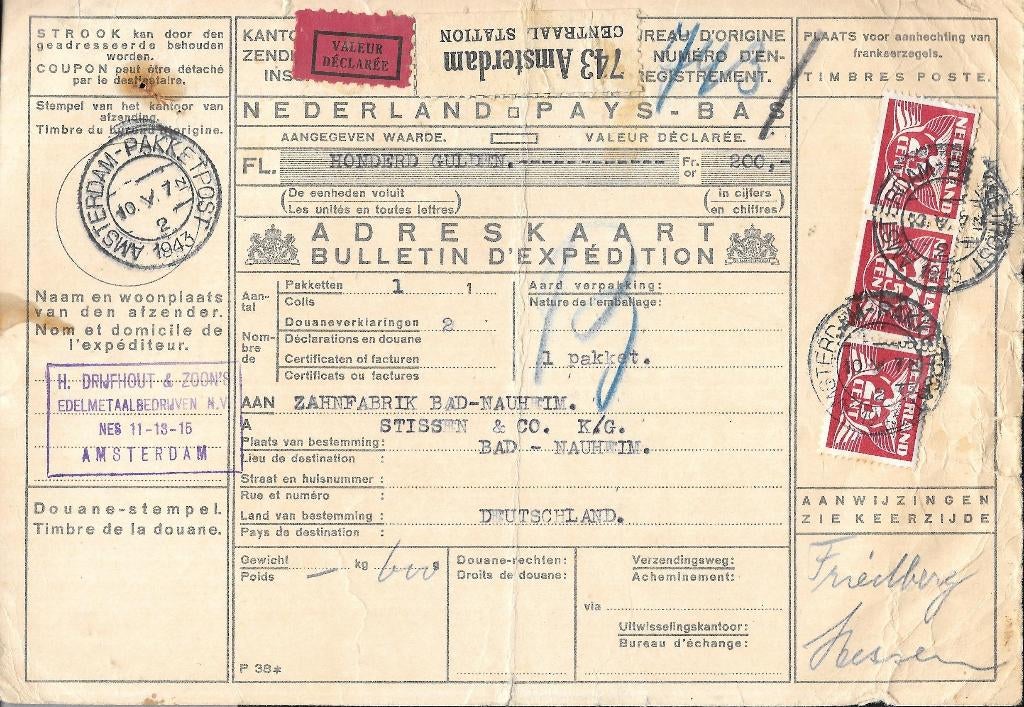 STROOK kan door den
geadresseerde behouden
worden.
COUPON peut être détaché
par le destinataire.
Stempel van het kantoor van
afzending.
Timbre du bureau d'origine.
AMSTERDAM-PAKKETPOST
10.V.
2
1943
Naam en woonplaats
van den afzender.
Nom et domicile de
l'expéditeur.
H. DRIJFHOUT & ZOON'S
EDELMETAALBEDRIJVEN N.V.
NES 11-13-15
AMSTERDAM
Douane-stempel.
Timbre de la douane.
VALEUR
DÉCLARÉE
743 Amsterdam
CENTRAAL STATION
REAU D'ORIGINE
NUMÉRO D'EN-
REGISTREMENT.
NEDERLAND PAYS-BAS
AANGEGEVEN WAARDE. VALEUR DÉCLARÉE.
FL. HONDERD GULDEN. Fr. or 200,-
(De eenheden voluit
Les unités en toutes lettres)
(in cijfers
en chiffres)
ADRESKAART
BULLETIN D'EXPÉDITION
Aan-
tal
Pakketten 1 1
Colis
Nombre
de
Douaneverklaringen 2
Déclarations en douane
Certificaten of facturen
Certificats ou factures
Aard verpakking:
Nature de l'emballage:
1 pakket.
AAN ZAHNFABRIK BAD-NAUHEIM.
A STISSEN & CO. K/G.
Plaats van bestemming: BAD - NAUHEIM.
Lieu de destination :
Straat en huisnummer :
Rue et numéro :
Land van bestemming : DEUTSCHLAND.
Pays de destination :
Gewicht
Poids
— kg 600 g
Douane-rechten:
Droits de douane:
Verzendingsweg:
Acheminement:
via
Uitwisselingskantoor:
Bureau d'échange:
P 38*
PLAATS voor aanhechting van
frankeerzegels.
TIMBRES POSTE.
NEDERLAND
CENT
NEDERLAND
CENT
NEDERLAND
CENT
AANWIJZINGEN
ZIE KEERZIJDE
Friedberg
Hessen